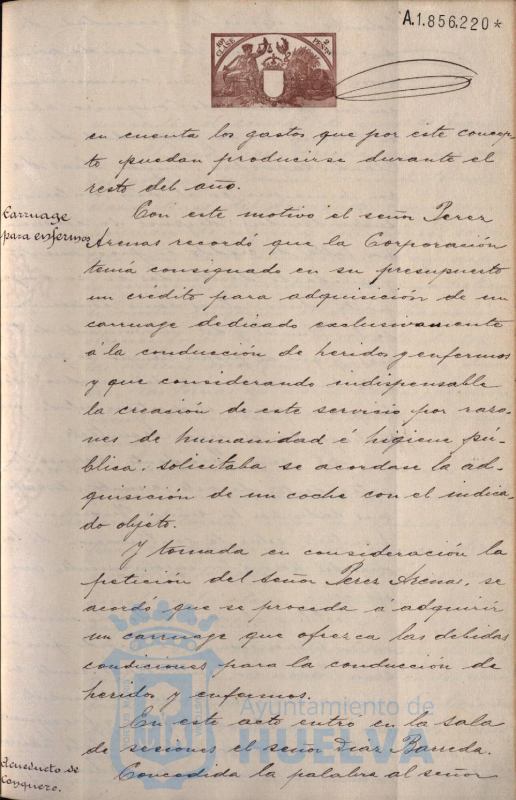 A.1.856.220*
10ª CLASE 2 PESETAS
en cuenta los gastos que por este concep-
to puedan producirse durante el
resto del año.
Carruage
para enfermos
Con este motivo el señor Perez
Arenas recordó que la Corporación
tenía consignado en su presupuesto
un crédito para adquisición de un
carruage dedicado exclusivamente
á la conducción de heridos y enfermos
y que considerando indispensable
la creación de este servicio por razo-
nes de humanidad é higiene pú-
blica, solicitaba se acordase la ad-
quisición de un coche con el indica-
do objeto.
Y tomada en consideración la
petición del señor Perez Arenas, se
acordó que se proceda á adquirir
un carruage que ofrezca las debidas
condiciones para la conducción de
heridos y enfermos.
En este acto entró en la sala
de sesiones el señor Diaz Barreda.
Acueducto de
Conquero.
Concedida la palabra al señor
Ayuntamiento de
HUELVA